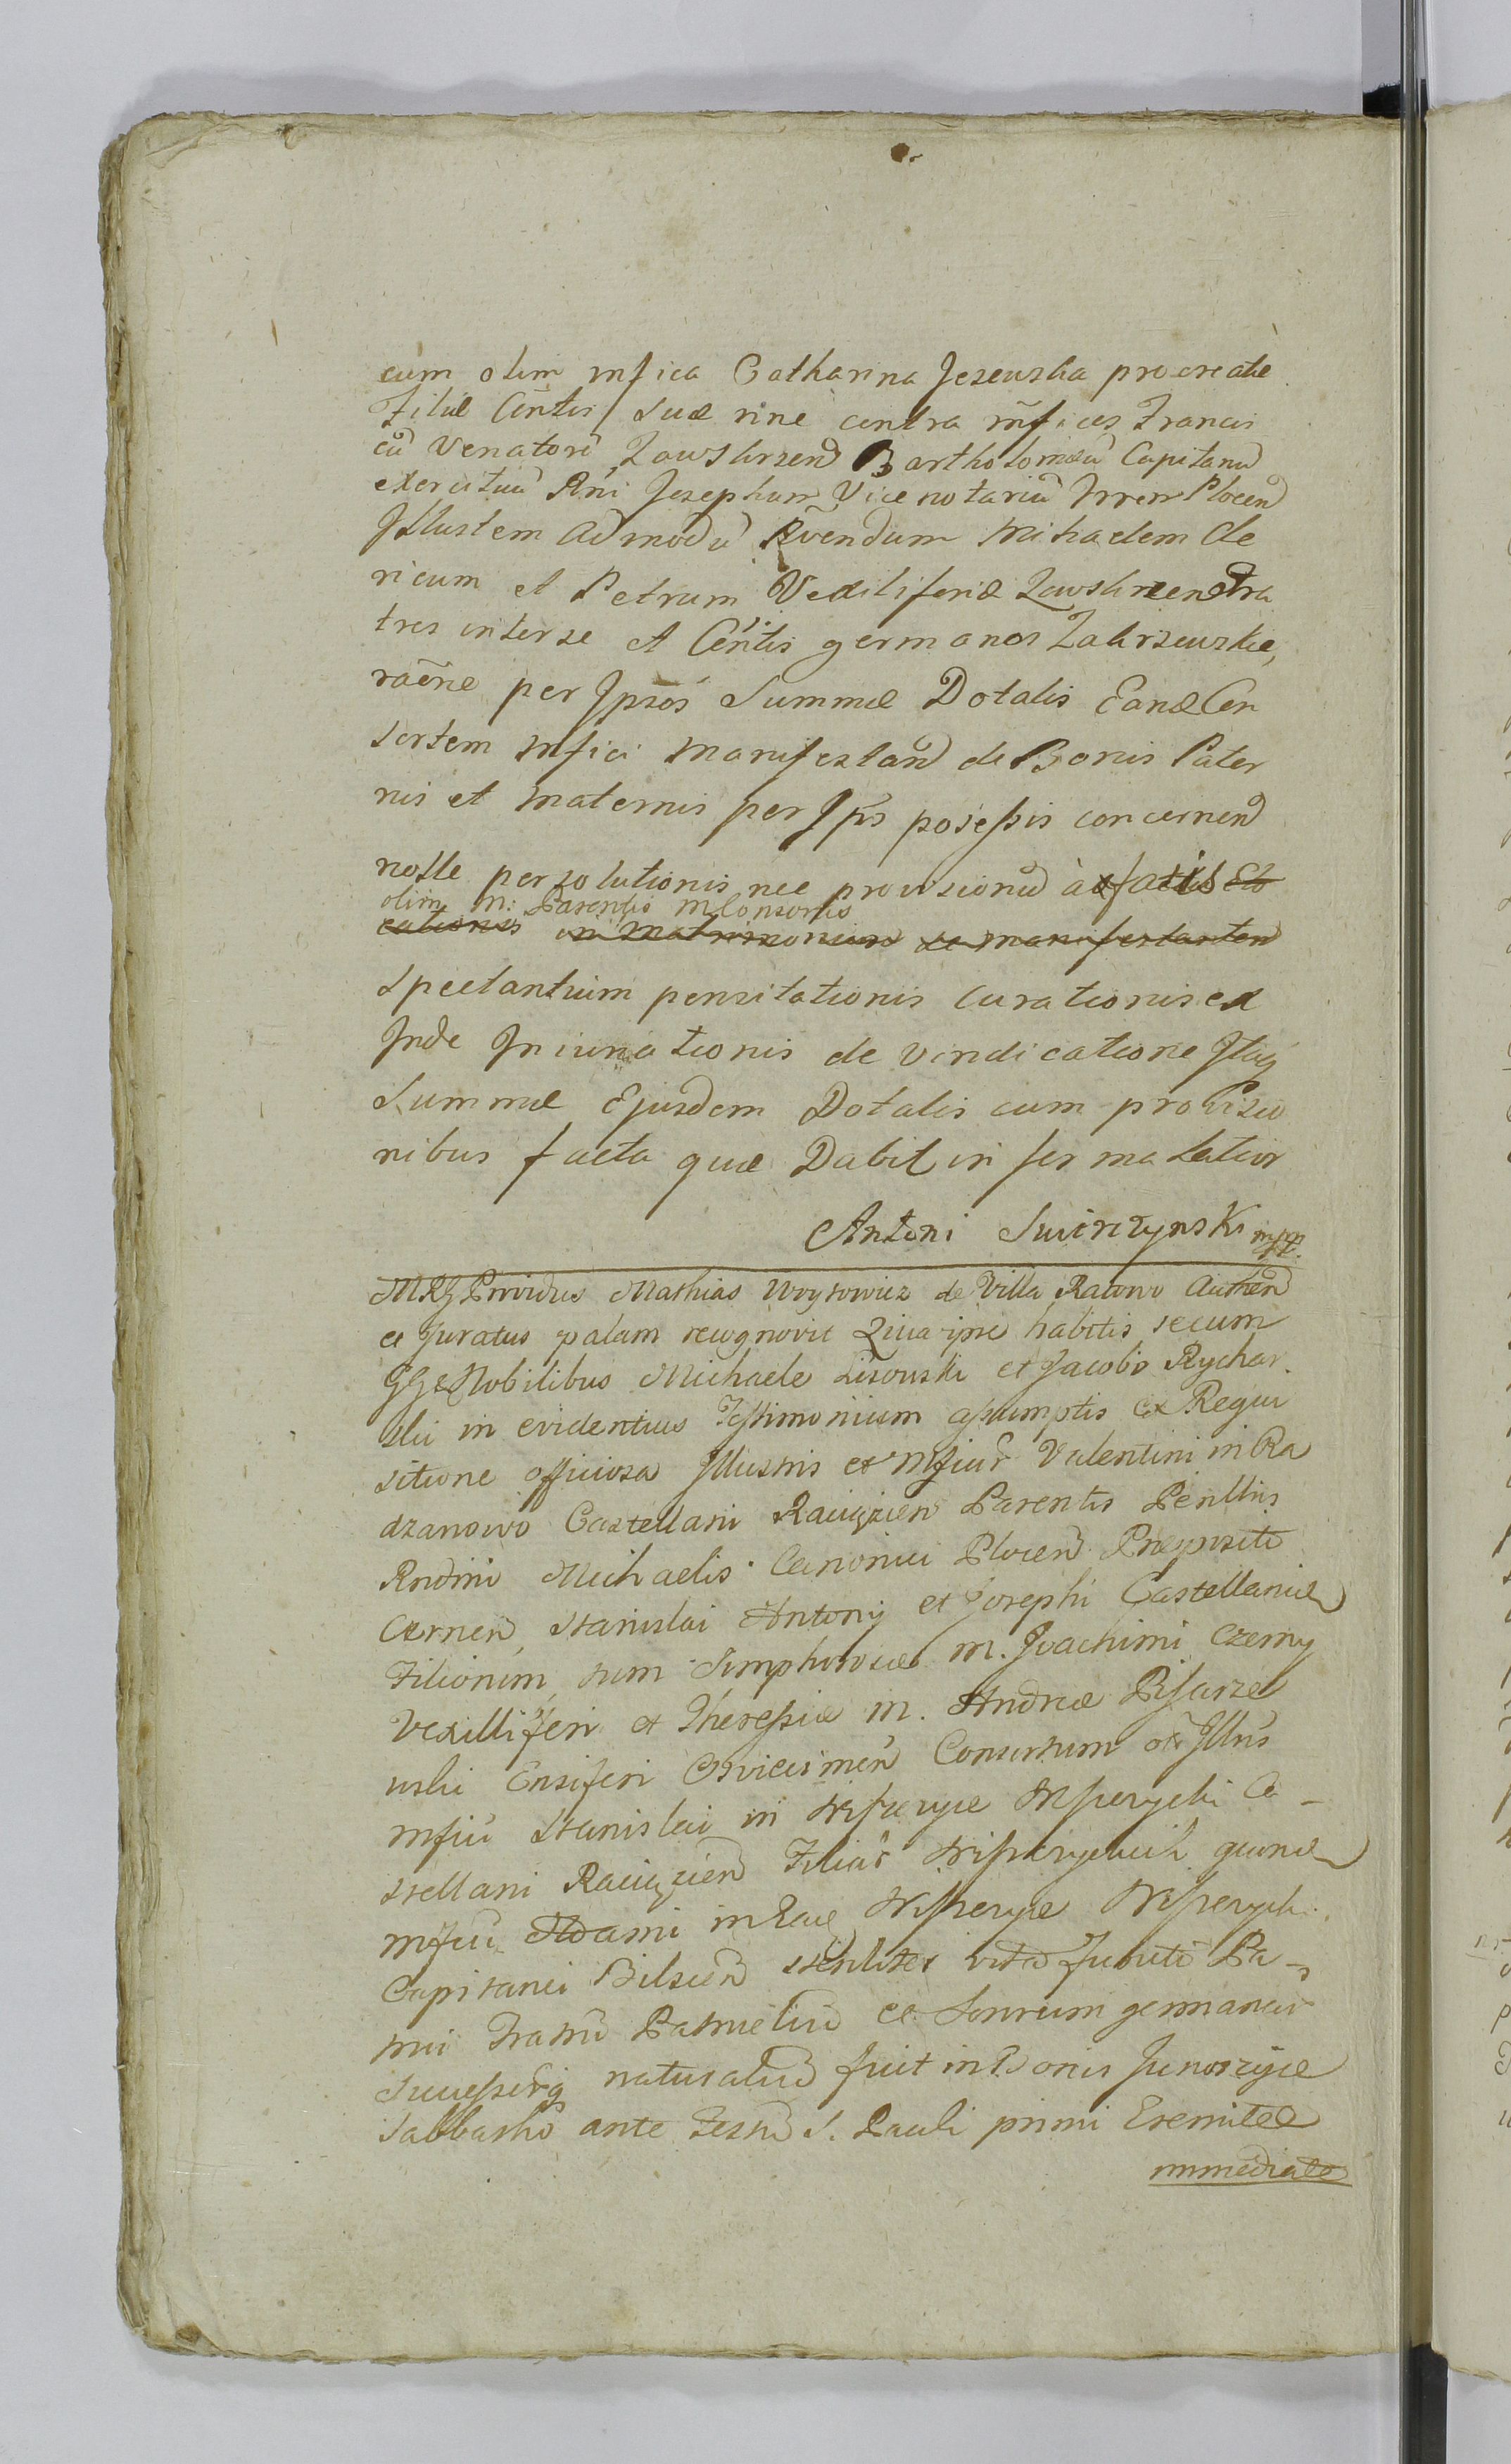 cum olim mfica Catharina Jezewska procreatæ
Filiæ Cēntis suæ nine contra m̃fices Francis
cũ Venatorẽ Zawskrzen̄ Bartholomæũ Capitanũ
exercituũ Rñi Josephum Vicenotariũ Trren Plocen̄
Jllustem Admodũ Rv̄endum Michaelem Cle
ricum et Petrum Vexiliferidæ Zawskrzen fra
tres inter se et Cēntis germanos Zakrzewskie,
raēne per Jpsos Summæ Dotalis Eand Con
sortem mfici manifestan̄ de Bonis Pater
nis et maternis per Jp̄s possessis concernen̄
nolle persolutionis nec provisionũ à factis
olim m: Parentis m Consortis
spectantium pensitationis curationis ex
Jnde Jniuriationis de vindicatione Jtaq
Summæ Ejusdem Dotalis cum provisio
nibus facta quæ Dabit in forma latior
Antoni Swirczynski mpp.
MRG Providus Mathias Woytowicz de Villa Ratowo Authen̄
et Juratus palam recognovit Quia ipse habitis secum
GGs Nobilibus Michaele Lisowski et Jacobo Rychar
ski in evidentius Testimonium assumptis ex Requi
sitione officiosa Jllustris et Mficor̃ Valentini in Ra
dzanowo Castellani Raciążen̄ Parentis Perillris
Rndmi Michaelis Canonici Plocen̄ Præpositi
Stanislai Antonij et Josephi Castellanid
Filiorum, tum Simphorosæ m. Joachimi Czerny
Vexilliferi et Theressiæ m. Andreæ Pisarze
wski Ensiferi Consortum ac Jllris
mfici Stanislai in Ca-
stellani Raciążen̄ Filiar̃ quond
mfici Adami in
Capitanei steriliter vita functi Pa-
trui Fratrũ Patrueliũ et Sororum germanar̃
Successorũ naturaliũ fuit in Bonis
Sabbatho ante Festũ S. Pauli primi Eremitæ
immediate